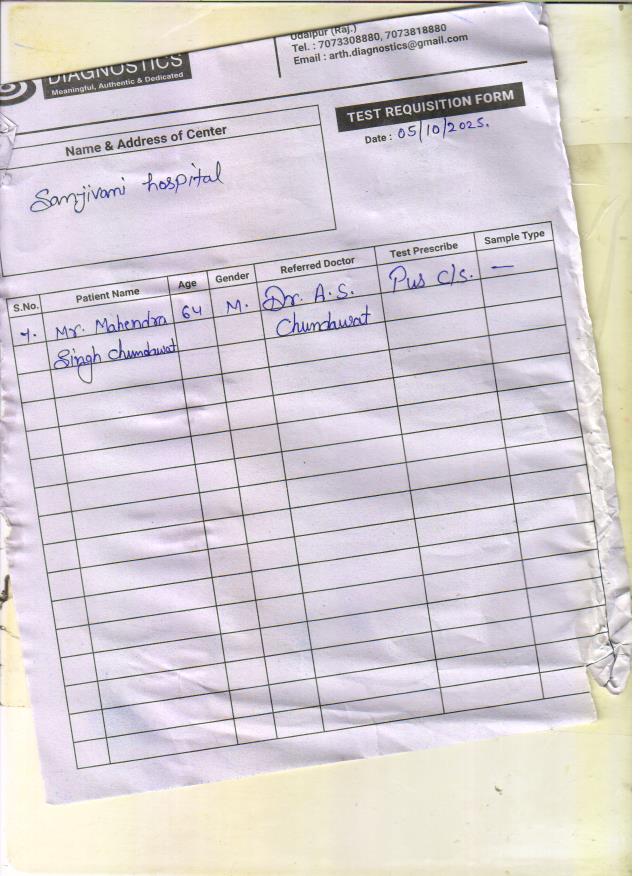 Udaipur (Raj.)
Tel. : 7073308880, 7073818880
Email : arth.diagnostics@gmail.com
DIAGNOSTICS
Meaningful, Authentic & Dedicated
TEST REQUISITION FORM
Date : 05/10/2025.
Name & Address of Center
Sanjivani hospital
S.No. Patient Name Age Gender Referred Doctor Test Prescribe Sample Type
1. Mr. Mahendra 64 M. Dr. A.S. Pus C/S. —
Singh Chundawat Chundawat